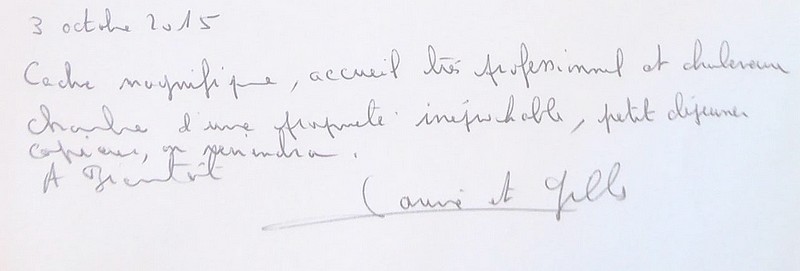 3 octobre 2015
Cadre magnifique, accueil très professionnel et chaleureux
chambre d'une propreté irréprochable, petit déjeuner
copieux, on reviendra.
A Bientôt
et Gilles